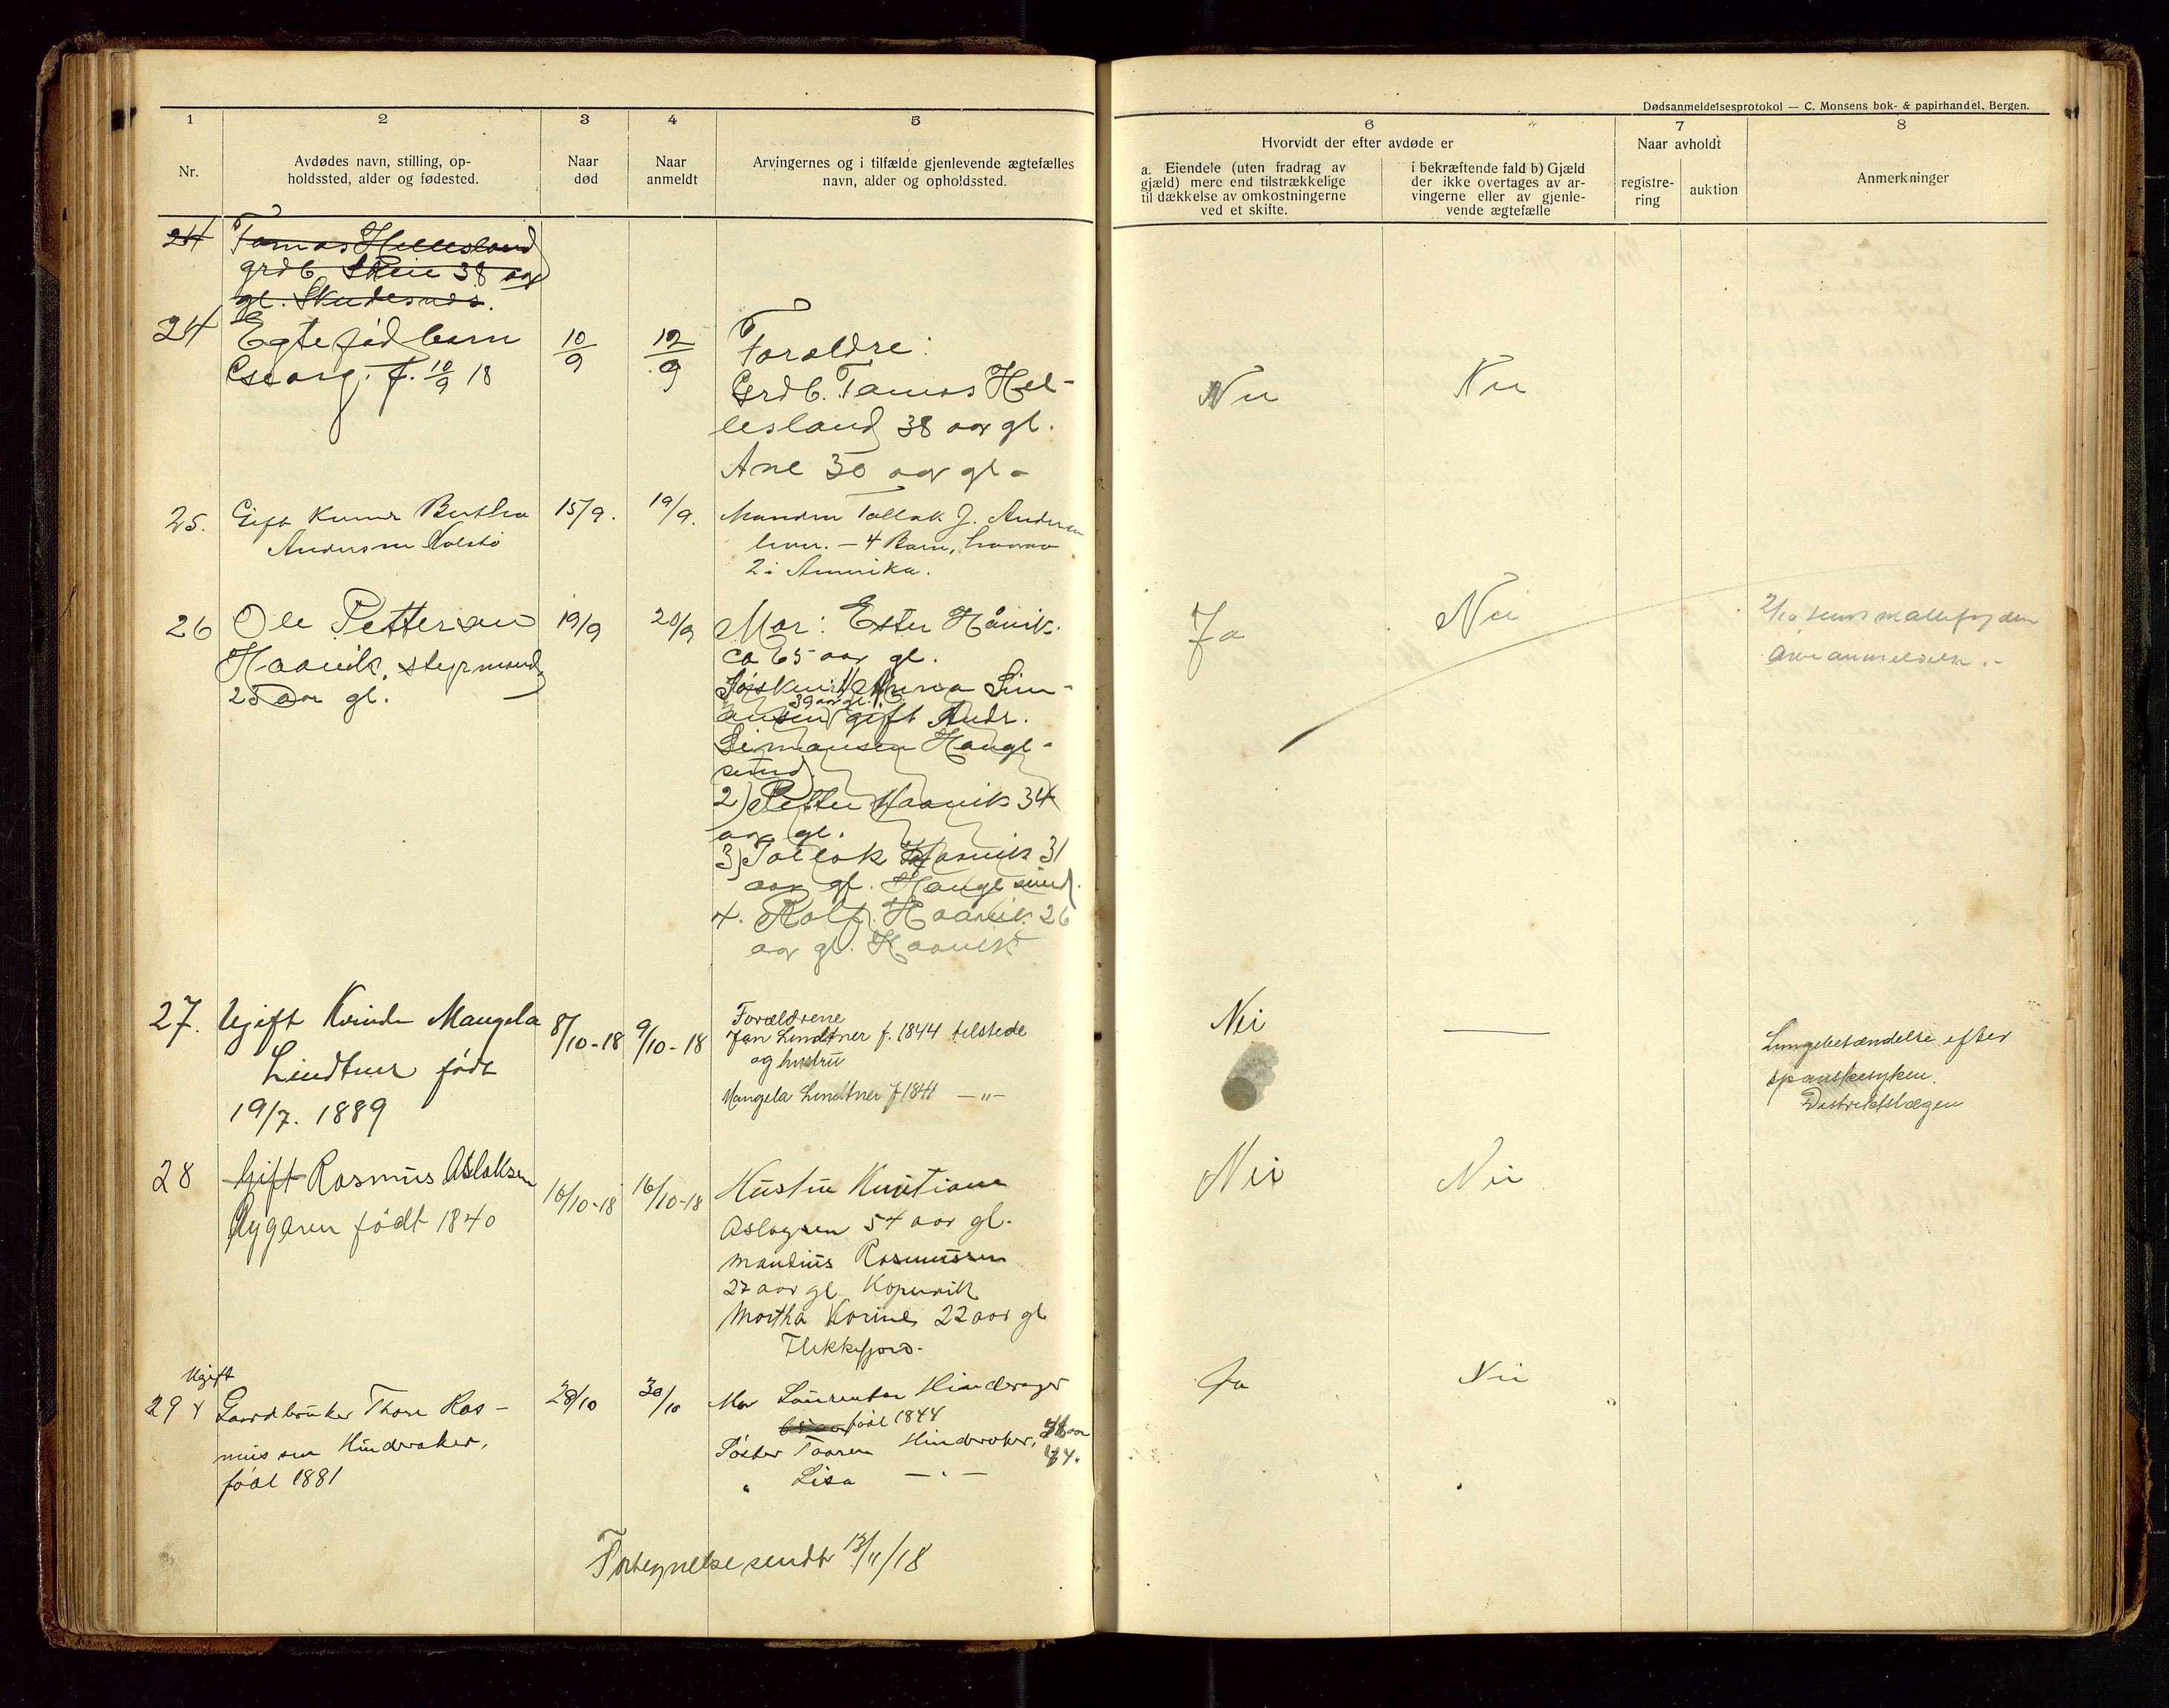 Dødsanmeldelsesprotokol — C. Monsens bok- & papirhandel, Bergen.
1 2 3 4 5 6 7 8
Nr.
Avdødes navn, stilling, op-
holdssted, alder og fødested.
Naar
død
Naar
anmeldt
Arvingernes og i tilfælde gjenlevende ægtefælles
navn, alder og opholdssted.
Hvorvidt der efter avdøde er
a. Eiendele (uten fradrag av
gjæld) mere end tilstrækkelige
til dækkelse av omkostningerne
ved et skifte.
i bekræftende fald b) Gjæld
der ikke overtages av ar-
vingerne eller av gjenle-
vende ægtefælle
Naar avholdt
registre-
ring
auktion
Anmerkninger
24 Tomas Hellesland
grdb. Skeie 38 aar
gl. Skudesnes.
24 Egtefød barn
Georg. f. 10/9 18
10/9
12/9
Forældre:
Grdb. Tomas Hel-
lesland 38 aar gl.
Ane 30 aar gl.
Nei
Nei
25. Gift Kvinde Bertha
Andersen Kolstø
15/9.
19/9.
Manden Tollak J. Andersen
4 Barn, hvorav
2 i Amerika.
26 Ole Pettersen
Haavik, styrmand
28 aar gl.
19/9
20/9
Mor: Ester Håvik.
ca 65 aar gl.
Søsken: 1) Anna Sim-
39 aar gl.
ansen gift Andr.
Simonsen Hauge-
sund
2) Petter Haavik 34
aar gl.
3) Tollak Haavik 31
aar gl. Haugesund.
4. Rolf Haavik 26
aar gl. Haavik
Ja
Nei
2/10
arveanmeldelse.-
27. Ugift Kvinde Mangela
Lindtner født
19/7. 1889
8/10-18
9/10-18
Forældrene
Jan Lindtner f. 1844 tilstede
og hustru
Mangela Lindtner f 1841 —"—
Nei
—
Lungebetændelse efter
spanskesyken.
Distriktslægen
28 Gift Rasmus Aslaksen
Nygaren født 1840
16/10-18
16/10-18
Hustru Kristiane
Aslagsen 54 aar gl.
Mandius Rasmussen
27 aar gl Kopervik
Martha Karine 22 aar gl
Flekkefjord.
Nei
Nei
Ugift
29 Gaardbruker Thore Ras-
mussen Hinderaker,
født 1881
28/10
30/10
Mor Laurentse Hinderager
født 1844
Søster Taaren Hinderaker,
" Lisa —"—
Ja
Nei
Fortegnelse sendt 13/11/18